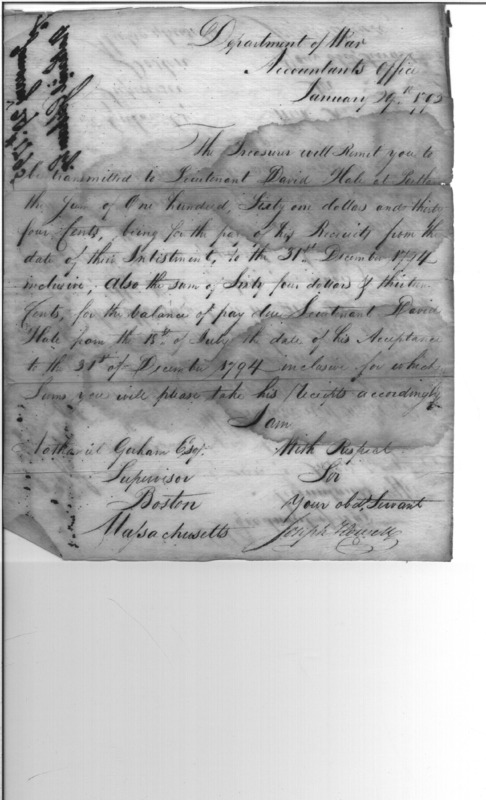 Department of War
Accountants Office
January 29th
The Treasurer will Remit you to
be transmitted to Lieutenant David Hale at
the Sum of One hundred Sixty one dollars and
four Cents, being for the pay of his Recruits from the
date of their Inlistment, to the 31st December 1794
inclusive, also the sum of Sixty four dollars &
Cents, for the balance of pay due Lieutenant David
Hale from the of July the date of his Acceptance
to the 31st of December 1794 inclusive for which
Sums you will please take his Receipts accordingly
I am
Nathaniel Gorham Esqr. With Respect
Supervisor Sir
Boston Your obd. Servant
Massachusetts Joseph Howell